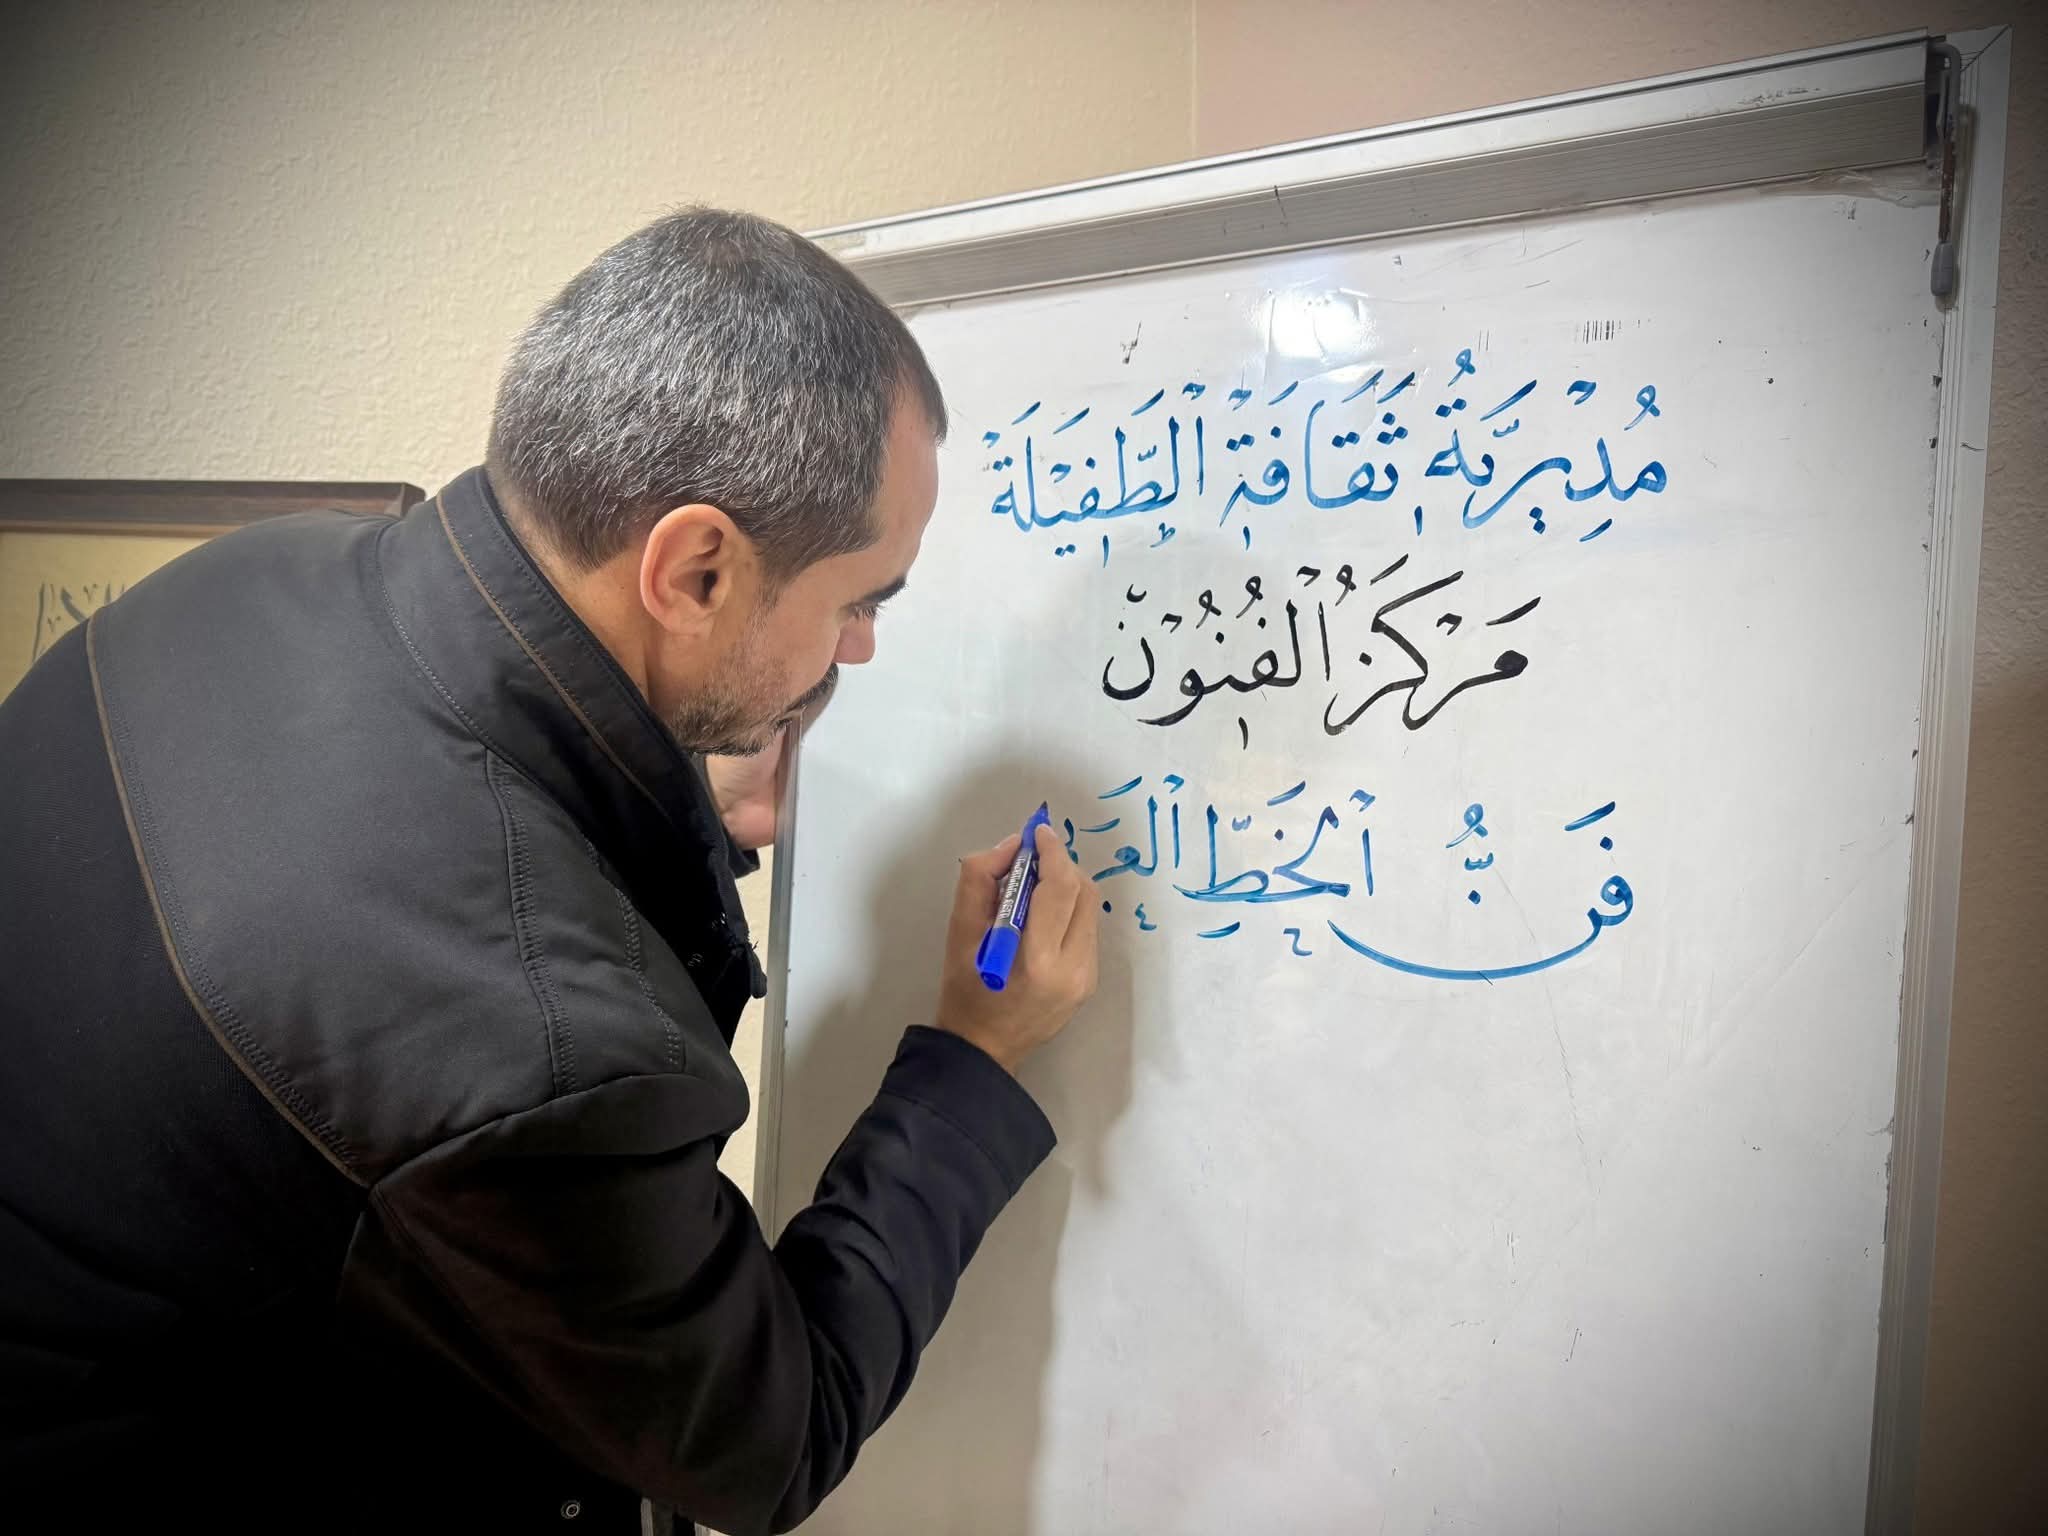 مُدِيْرِيَّةُ ثَقَافَةِ الْطَّفِيْلَةِ
مَرْكَزُ الْفُنُوْنْ
فَنُّ الْخَطِّ